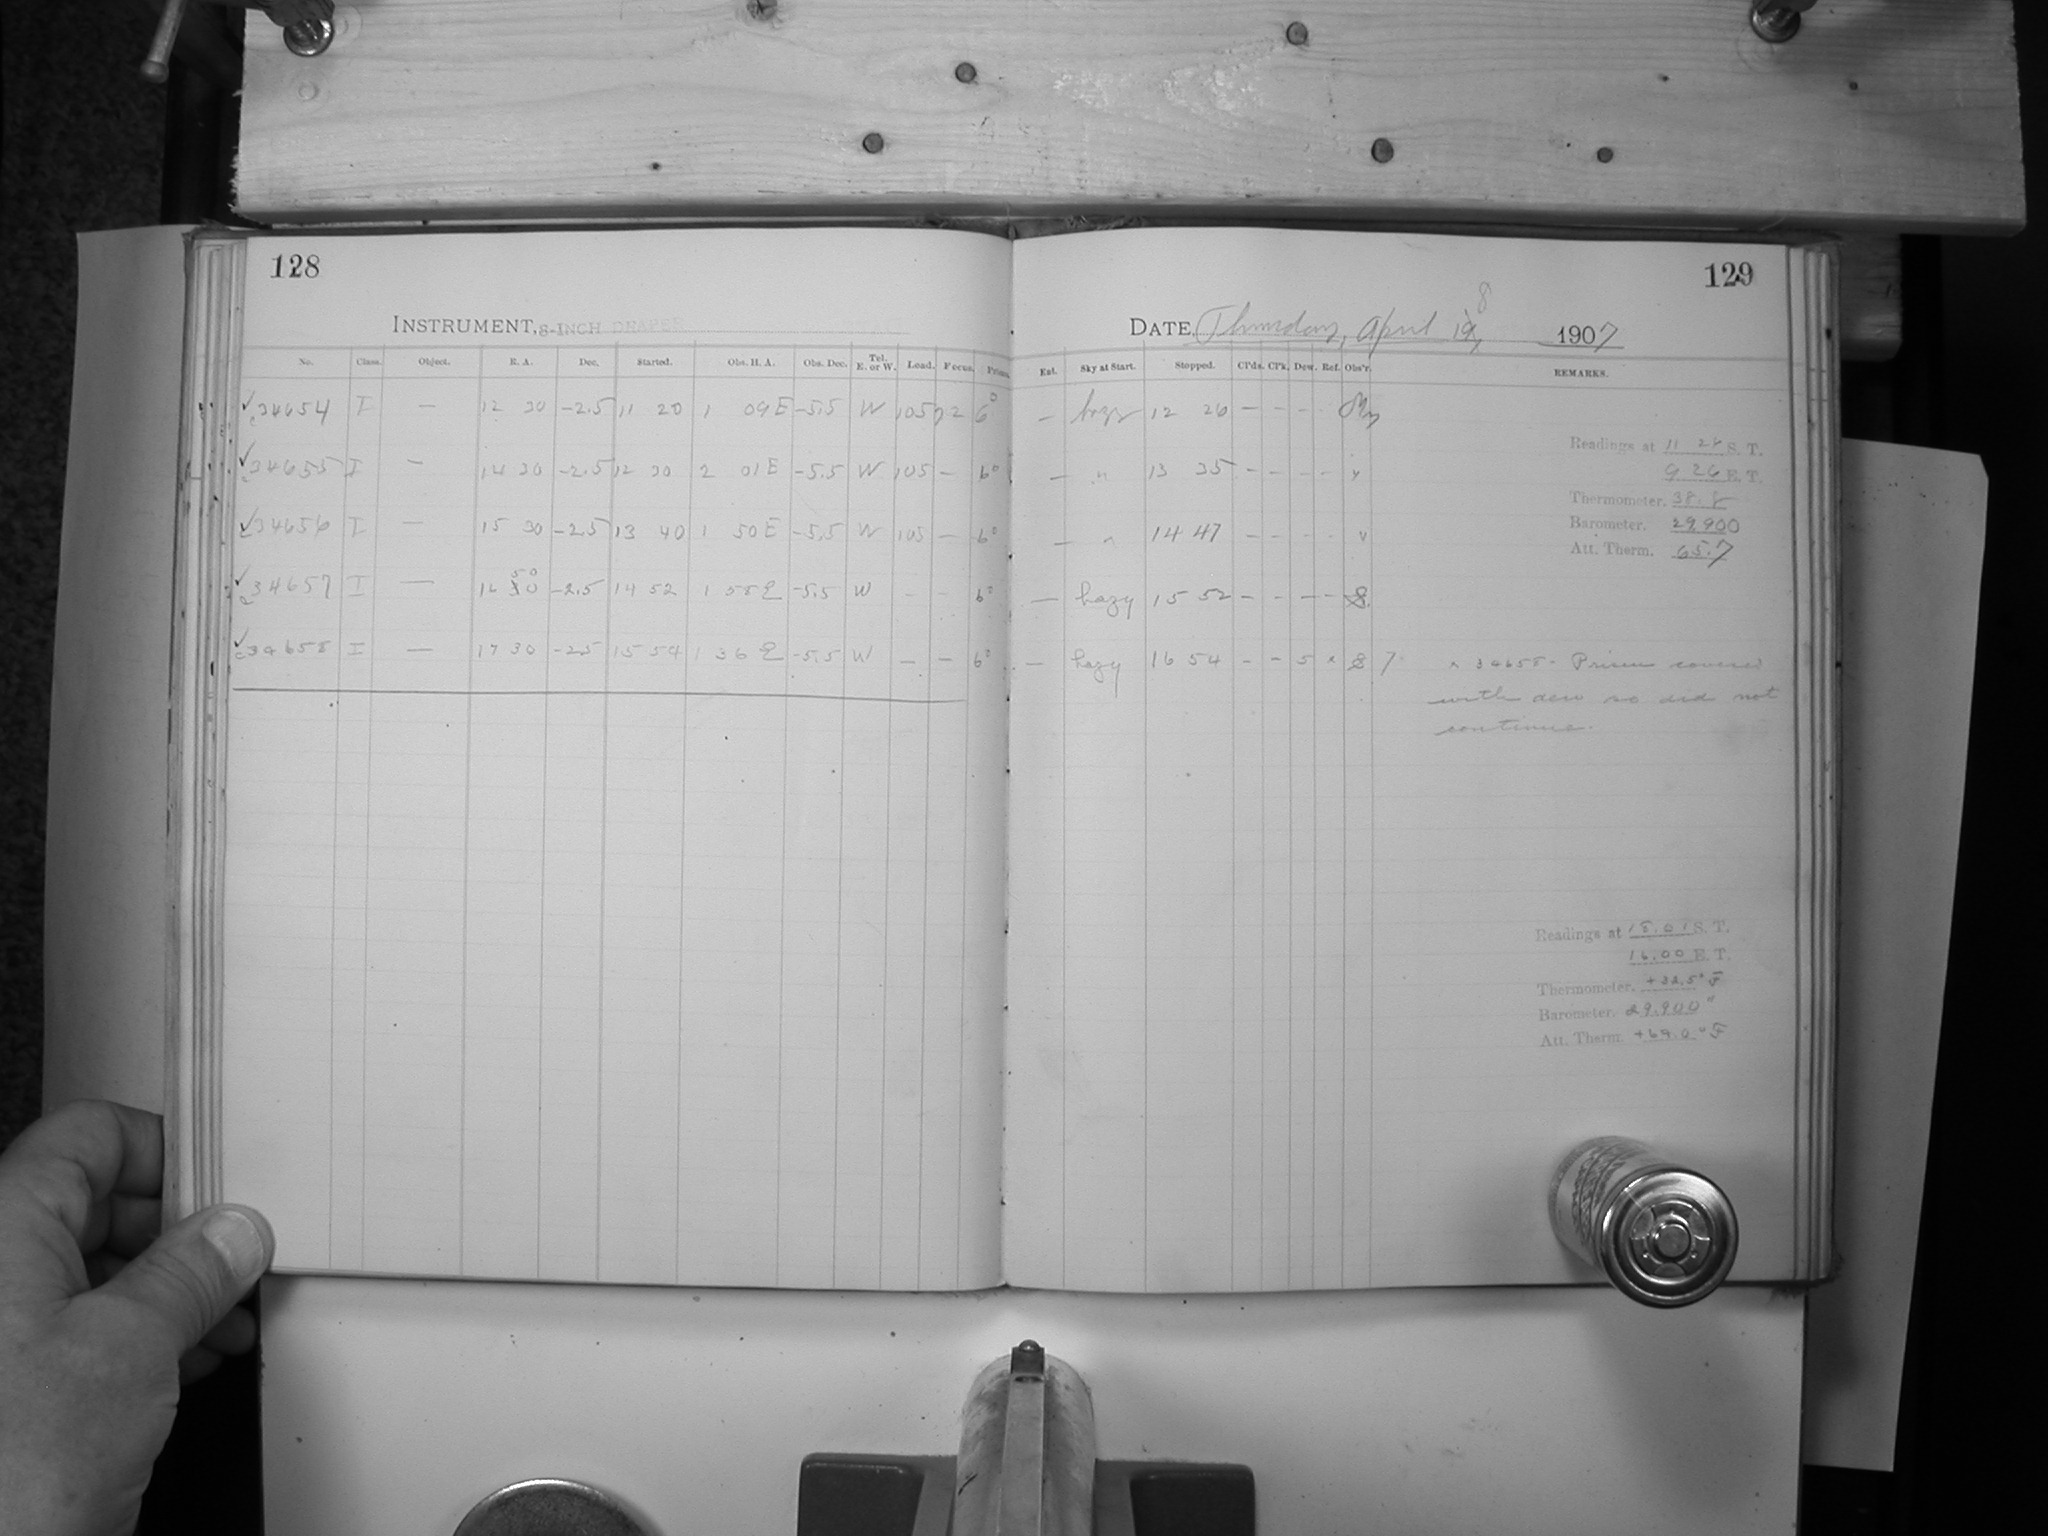 128
INSTRUMENT, 8-INCH DRAPER
No. Class. Object. R. A. Dec. Started. Obs. H. A. Obs. Dec. Tel. E. or W. Load. Focus. Prism.
✓ 34654 I — 12 30 -2.5 11 20 1 09 E -5.5 W 105 72 6°
✓ 34655 I — 14 30 -2.5 12 30 2 01 E -5.5 W 105 — 6°
✓ 34656 I — 15 30 -2.5 13 40 1 50 E -5.5 W 105 — 6°
50
✓ 34657 I — 16 30 -2.5 14 52 1 55 E -5.5 W - - 6°
✓ 34658 I — 17 30 -2.5 15 54 1 36 E -5.5 W — - 6°
129
8
DATE, Thursday, April 19, 1907
Ext. Sky at Start. Stopped. Cl'ds. Cl'k. Dew. Ref. Obs'r. REMARKS.
— hazy 12 26 — — - -
— " 13 35 - - - - "
— " 14 47 - - - - "
— hazy 15 52 — - — - S.
— hazy 16 54 - - 5 × S 7
Readings at 11 28 S. T.
9 26 E. T.
Thermometer. 38.8
Barometer. 29.900
Att. Therm. 65.7
× 34658 - Prism covered
with dew so did not
continue.
Readings at 18.01 S. T.
16.00 E. T.
Thermometer. +32.5° F
Barometer. 29.900"
Att. Therm. +64.0° F